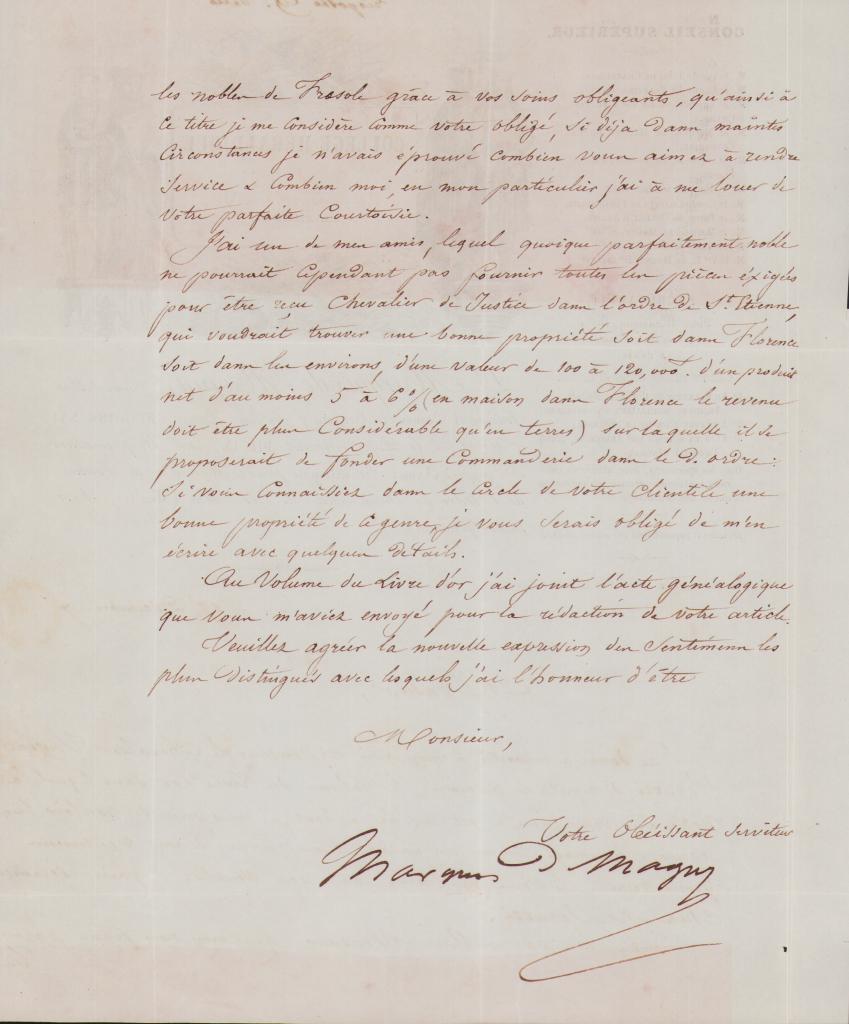 les nobles de Fiesole grâce à vos soins obligeants, qu'ainsi à
ce titre je me considère comme votre obligé, si déja dans maintes
circonstances je n'avais éprouvé combien vous aimez à rendre
service & combien moi, en mon particulier j'ai à me louer de
votre parfaite Courtoisie.
J'ai un de mes amis, lequel quoique parfaitement noble
ne pourrait cependant pas fournir toutes les pièces éxigées
pour être reçu Chevalier de Justice dans l'ordre de St. Etienne,
qui voudrait trouver une bonne propriété soit dans Florence
soit dans les environs, d'une valeur de 100 à 120,000f. d'un produit
net d'au moins 5 à 6 % (en maison dans Florence le revenu
doit être plus Considérable qu'en terres) sur laquelle il se
proposerait de fonder une Commanderie dans le d. ordre:
Si vous connaissiez dans le cercle de votre clientèle une
bonne propriété de ce genre, je vous serais obligé de m'en
écrire avec quelques détails.
Au Volume du Livre d'or j'ai joint l'acte généalogique
que vous m'aviez envoyé pour la rédaction de votre article.
Veuillez agréer la nouvelle expression des Sentimens les
plus distingués avec lesquels j'ai l'honneur d'être
Monsieur,
Votre Obéissant serviteur
Marquis D Magny
CONSEIL SUPÉRIEUR.